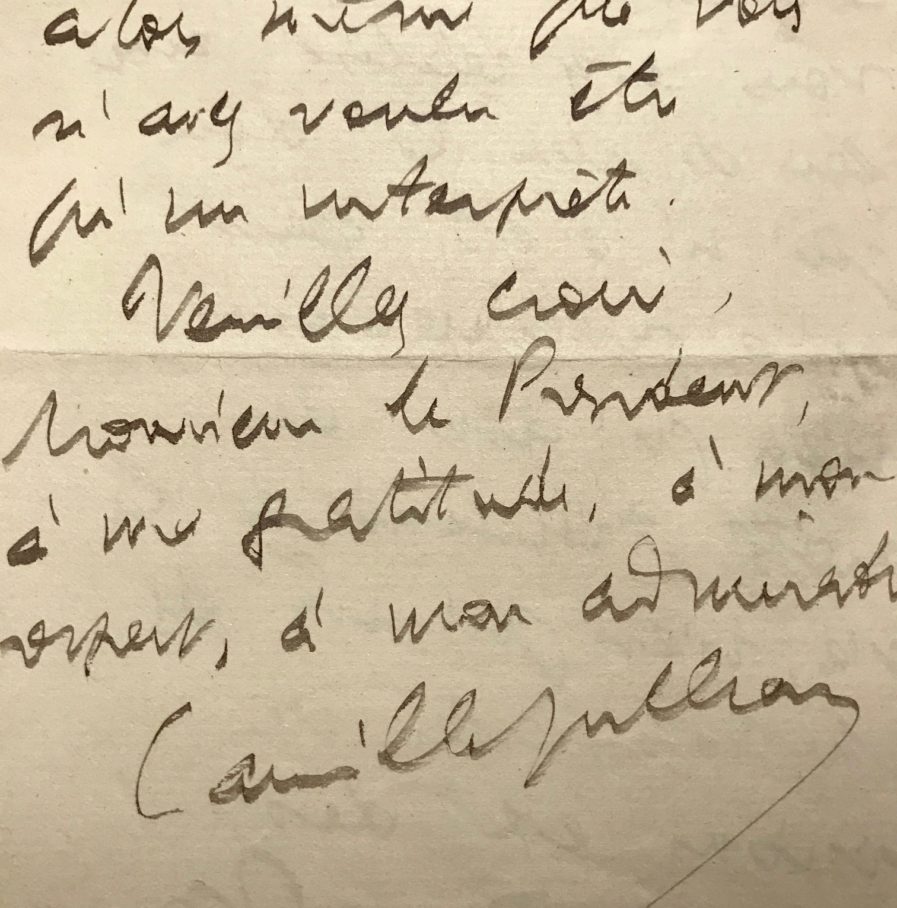 alors même que vous
n'avez voulu être
qu'un interprète.
Veuillez croire,
Monsieur le Président,
à ma gratitude, à mon
respect, à mon admiration
Camille Jullian